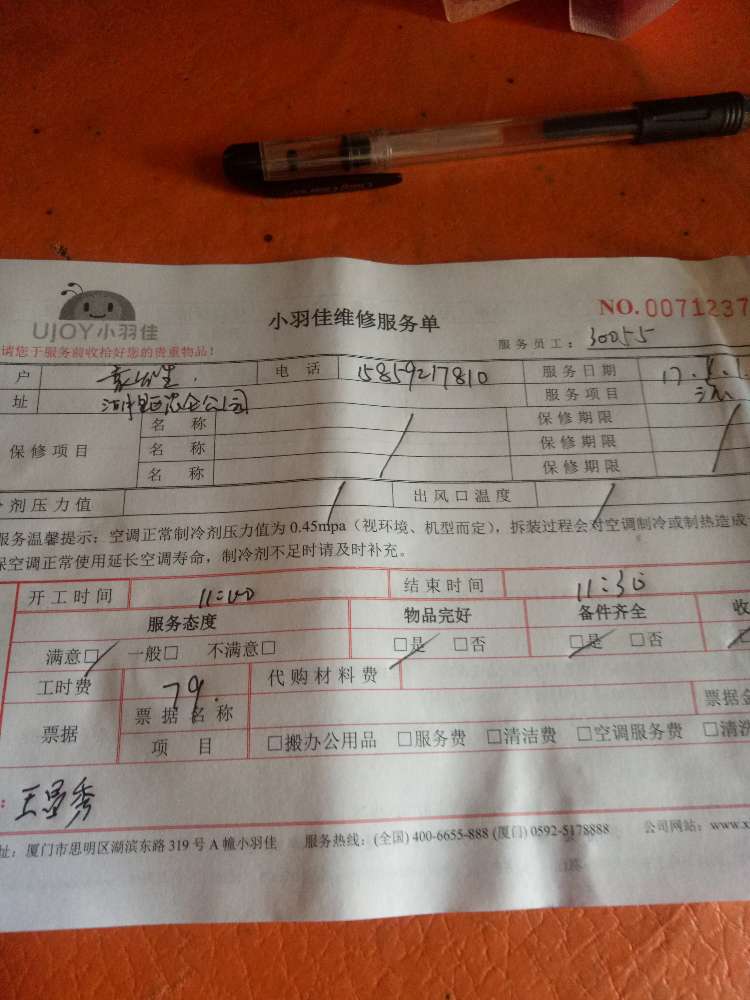 UJOY小羽佳
小羽佳维修服务单
NO. 0071237
请您于服务前收拾好您的贵重物品!
服务员工: 30055
户
电 话 15859217810
服务日期 17.
址
服务项目
保修项目
名 称
保修期限
名 称
保修期限
名 称
保修期限
剂压力值
出风口温度
服务温馨提示:空调正常制冷剂压力值为 0.45mpa(视环境、机型而定),拆装过程会对空调制冷或制热造成
保空调正常使用延长空调寿命,制冷剂不足时请及时补充。
开工时间 11:00
结束时间 11:30
服务态度
物品完好
备件齐全
收
满意□ 一般□ 不满意□
□是 □否
□是 □否
工时费 79.
代购材料费
票据
票据名称
票据金
项 目
□搬办公用品 □服务费 □清洁费 □空调服务费 □清洗
址:厦门市思明区湖滨东路 319 号 A 幢小羽佳 服务热线:(全国) 400-6655-888 (厦门) 0592-5178888 公司网站:www.x